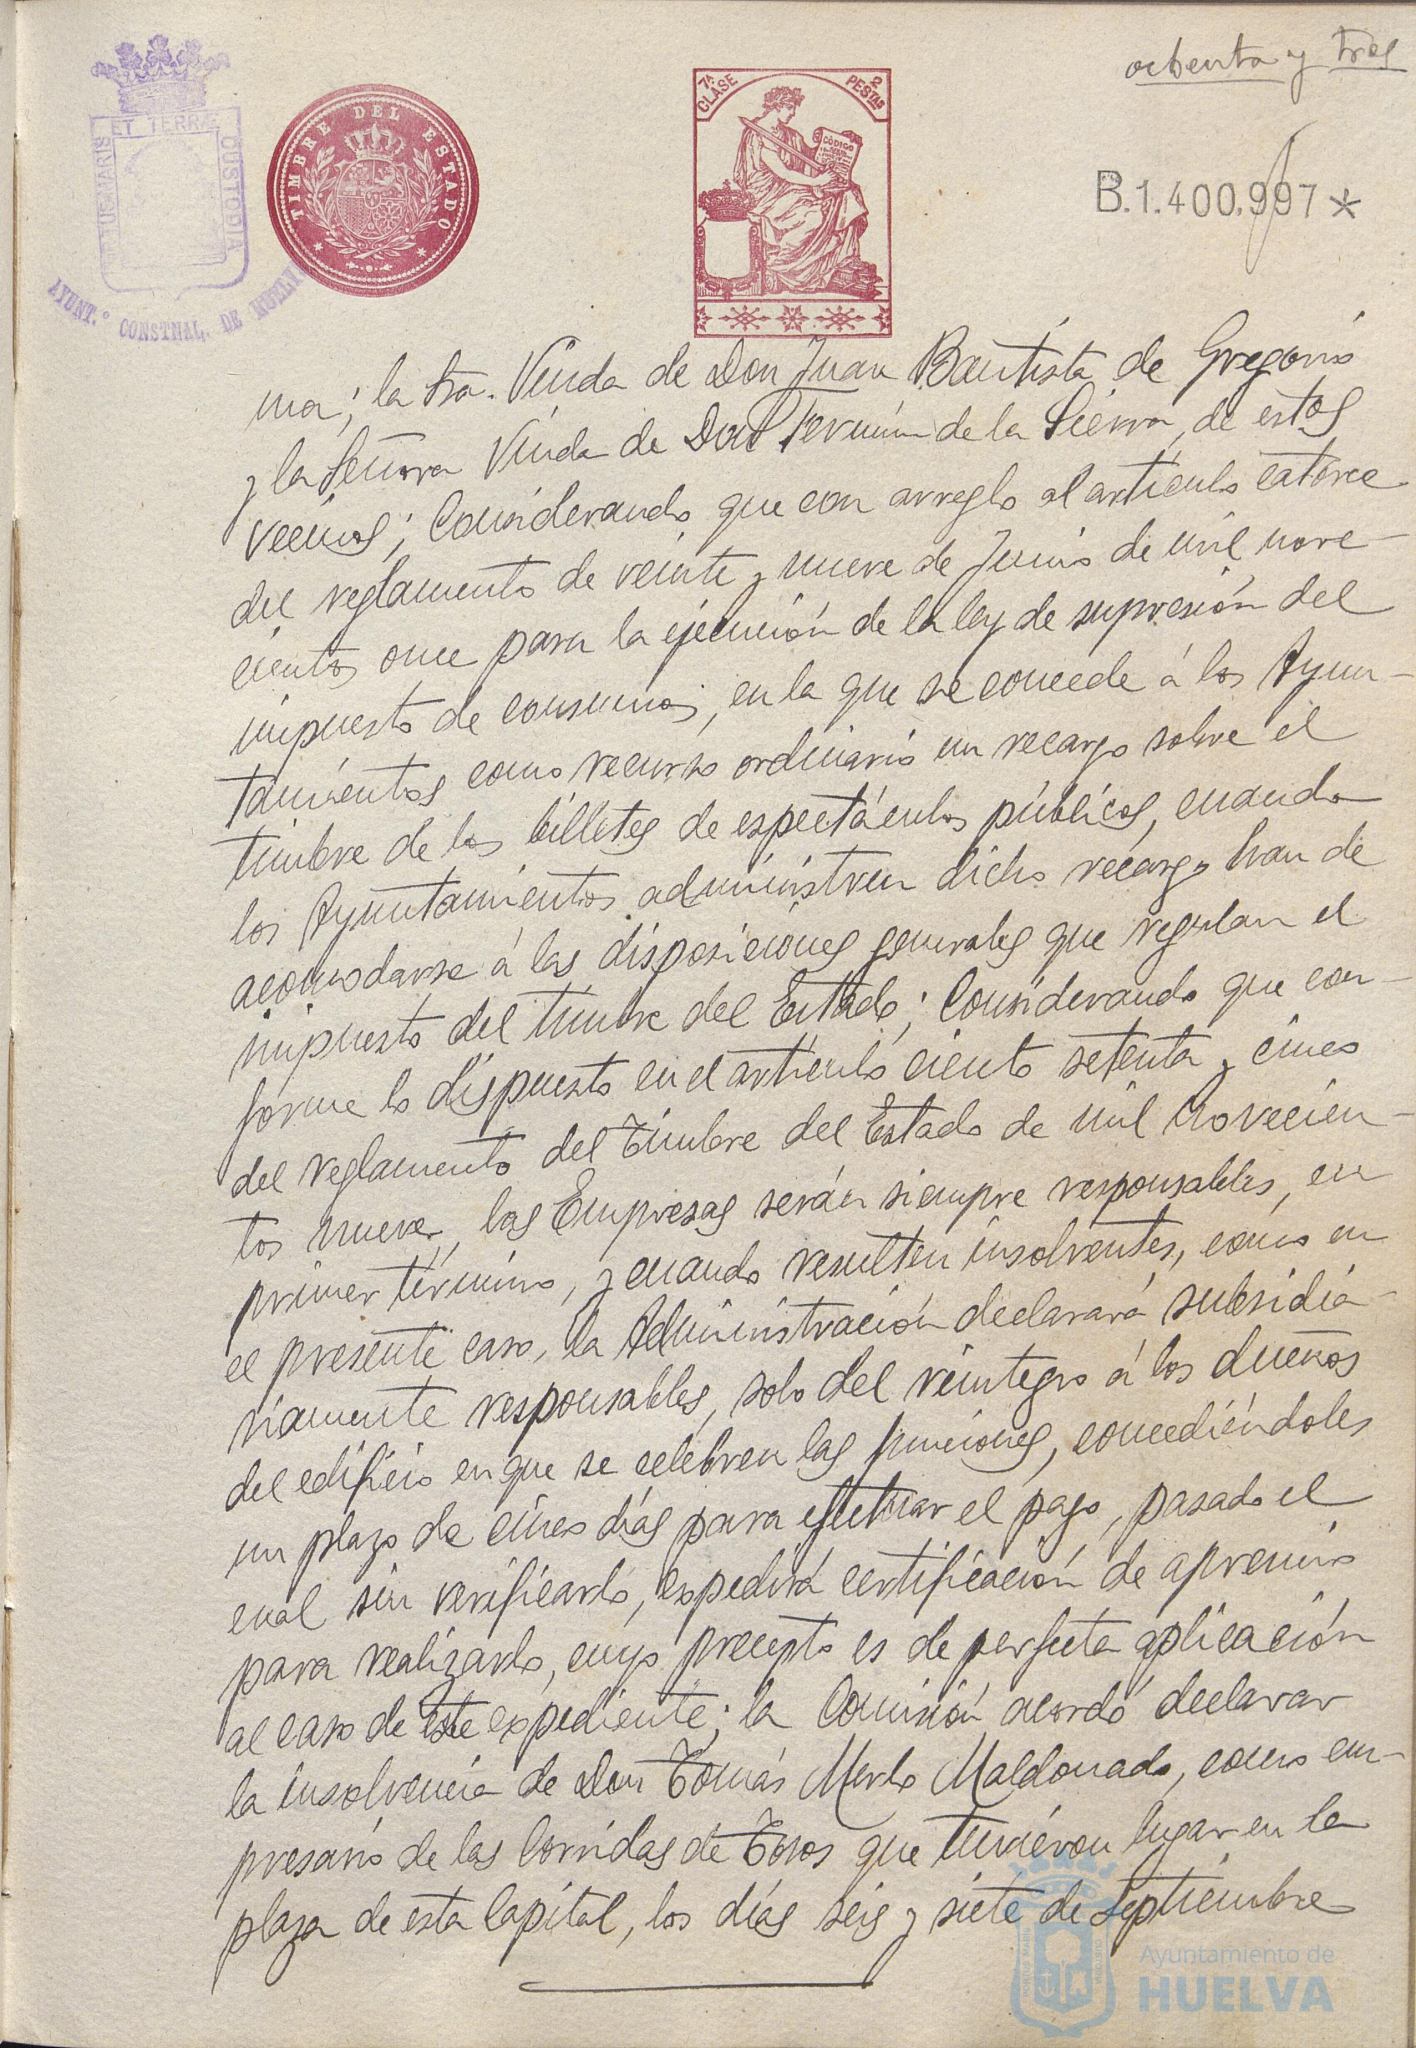 ochenta y tres
ET TERRÆ
CUSTODIA
AYUNT.º CONSTNAL. DE HUELVA
TIMBRE DEL ESTADO
7ª CLASE
2 PESTAS
CÓDIGO
B.1.400.997*
ma; la Sra. Viuda de Don Juan Bautista de Gregorio
y la Señora Viuda de Don Fermín de la Sierra, de estos
vecinos; Considerando que con arreglo al artículo catorce
del reglamento de veinte y nueve de Junio de mil nove-
cientos once para la ejecución de la ley de supresión del
impuesto de consumos, en la que se concede á los Ayun-
tamientos como recurso ordinario un recargo sobre el
timbre de los billetes de espectáculos públicos, cuando
los Ayuntamientos administren dicho recargo han de
acomodarse á las disposiciones generales que regulan el
impuesto del timbre del Estado; Considerando que con-
forme lo dispuesto en el artículo ciento setenta y cinco
del reglamento del Timbre del Estado de mil novecien-
tos nueve, las Empresas serán siempre responsables, en
primer término, y cuando resulten insolventes, como en
el presente caso, la Administración declarará subsidia-
riamente responsables, solo del reintegro á los dueños
del edificio en que se celebren las funciones, concediéndoles
un plazo de cinco días para efectuar el pago, pasado el
cual sin verificarlo, expedirá certificación de apremio
para realizarlo, cuyo precepto es de perfecta aplicación
al caso de este expediente; la Comisión acordó declarar
la insolvencia de Don Tomás Merlo Maldonado, como em-
presario de las Corridas de Toros que tuvieron lugar en la
plaza de esta Capital, los días seis y siete de Septiembre
Ayuntamiento de
HUELVA